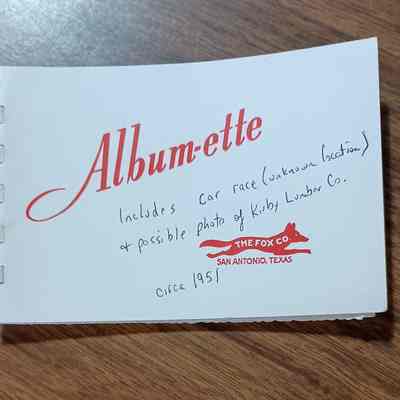 Album-ette
Includes car race (unknown location)
+ possible photo of Kirby Lumber Co.
THE FOX CO.
SAN ANTONIO, TEXAS
circa 1951